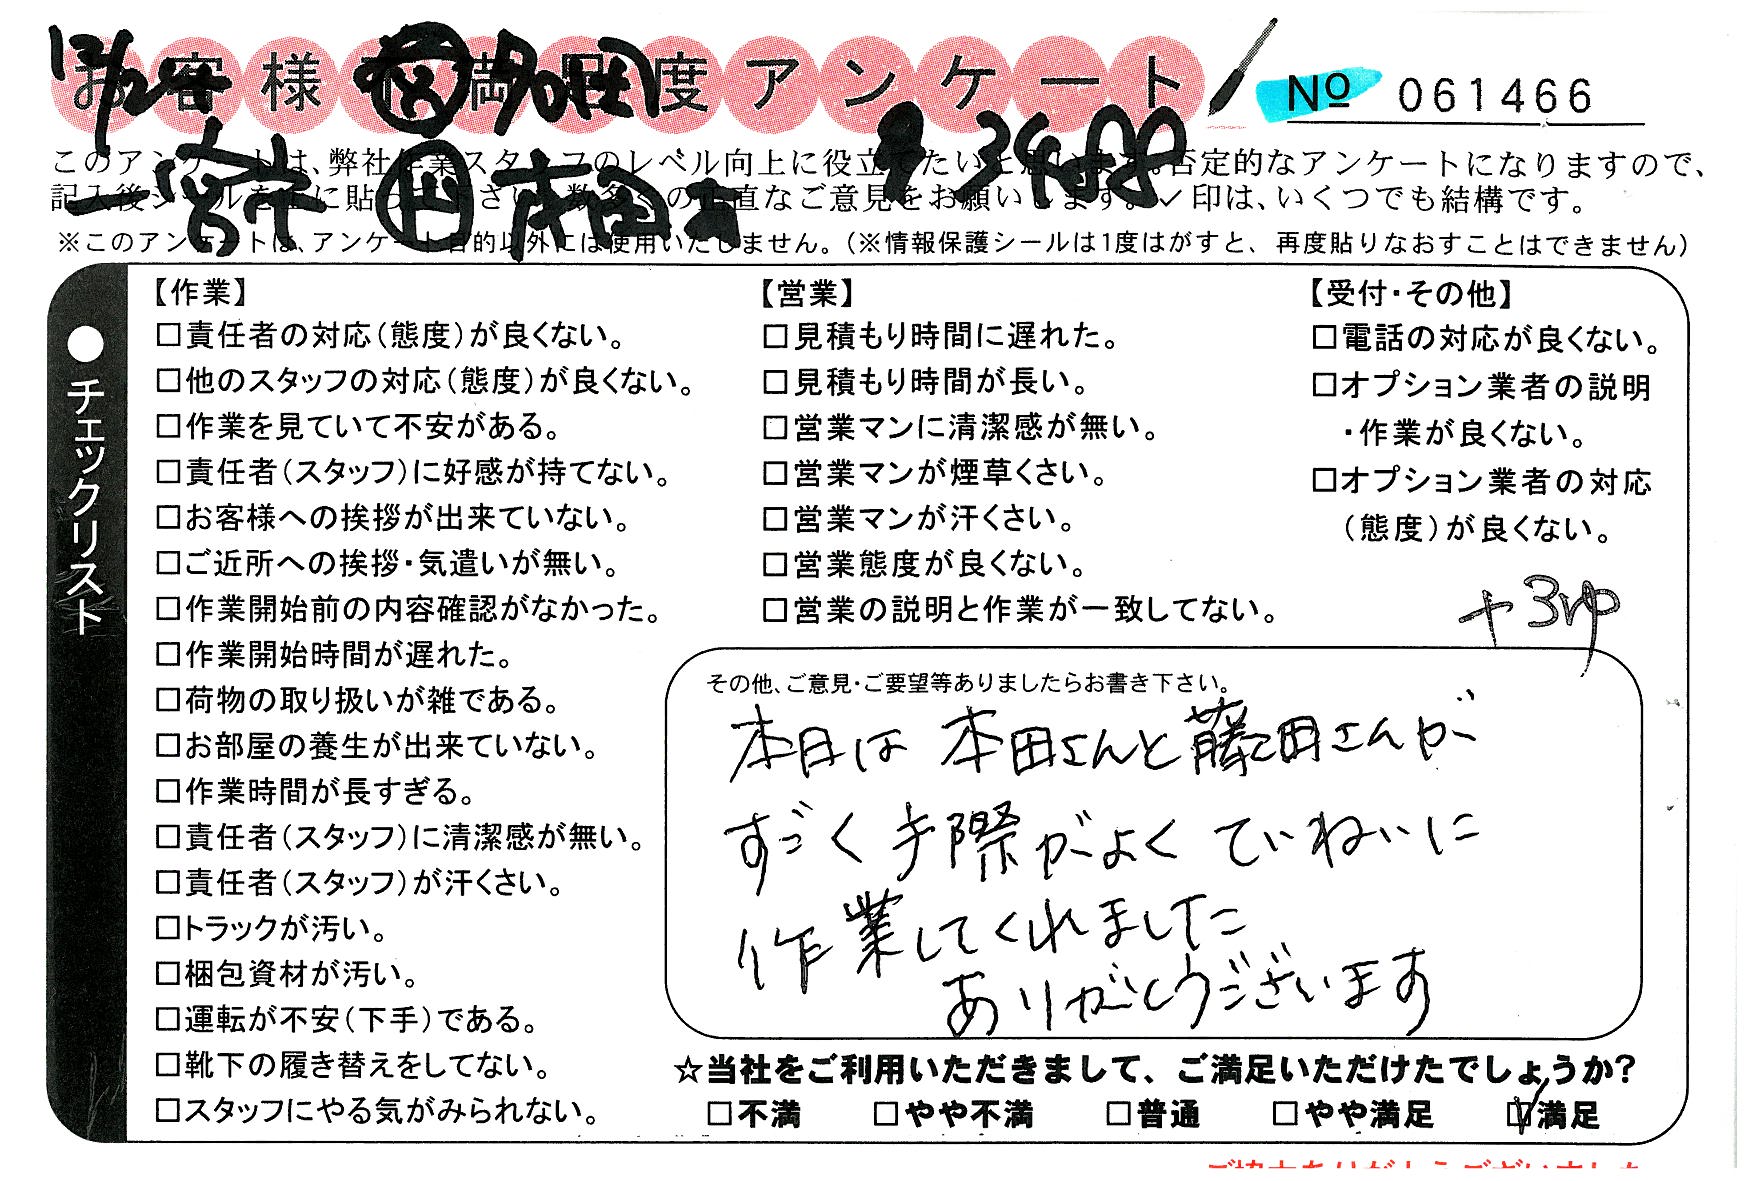 お客様不満足度アンケート
№ 061466
このアンケートは、弊社作業スタッフのレベル向上に役立てたいと思います。否定的なアンケートになりますので、
記入後シールを上に貼って下さい。数多くの正直なご意見をお願いします。✓印は、いくつでも結構です。
※このアンケートは、アンケート目的以外には使用いたしません。(※情報保護シールは1度はがすと、再度貼りなおすことはできません)
12/24
本田
●チェックリスト
【作業】
□責任者の対応(態度)が良くない。
□他のスタッフの対応(態度)が良くない。
□作業を見ていて不安がある。
□責任者(スタッフ)に好感が持てない。
□お客様への挨拶が出来ていない。
□ご近所への挨拶・気遣いが無い。
□作業開始前の内容確認がなかった。
□作業開始時間が遅れた。
□荷物の取り扱いが雑である。
□お部屋の養生が出来ていない。
□作業時間が長すぎる。
□責任者(スタッフ)に清潔感が無い。
□責任者(スタッフ)が汗くさい。
□トラックが汚い。
□梱包資材が汚い。
□運転が不安(下手)である。
□靴下の履き替えをしてない。
□スタッフにやる気がみられない。
【営業】
□見積もり時間に遅れた。
□見積もり時間が長い。
□営業マンに清潔感が無い。
□営業マンが煙草くさい。
□営業マンが汗くさい。
□営業態度が良くない。
□営業の説明と作業が一致してない。
【受付・その他】
□電話の対応が良くない。
□オプション業者の説明
・作業が良くない。
□オプション業者の対応
(態度)が良くない。
+3vp
その他、ご意見・ご要望等ありましたらお書き下さい。
本日は 本田さんと藤田さんが
すごく手際がよく ていねいに
作業してくれました
ありがとうございます
☆当社をご利用いただきまして、ご満足いただけたでしょうか?
□不満 □やや不満 □普通 □やや満足 ☑満足
ご協力ありがとうございました